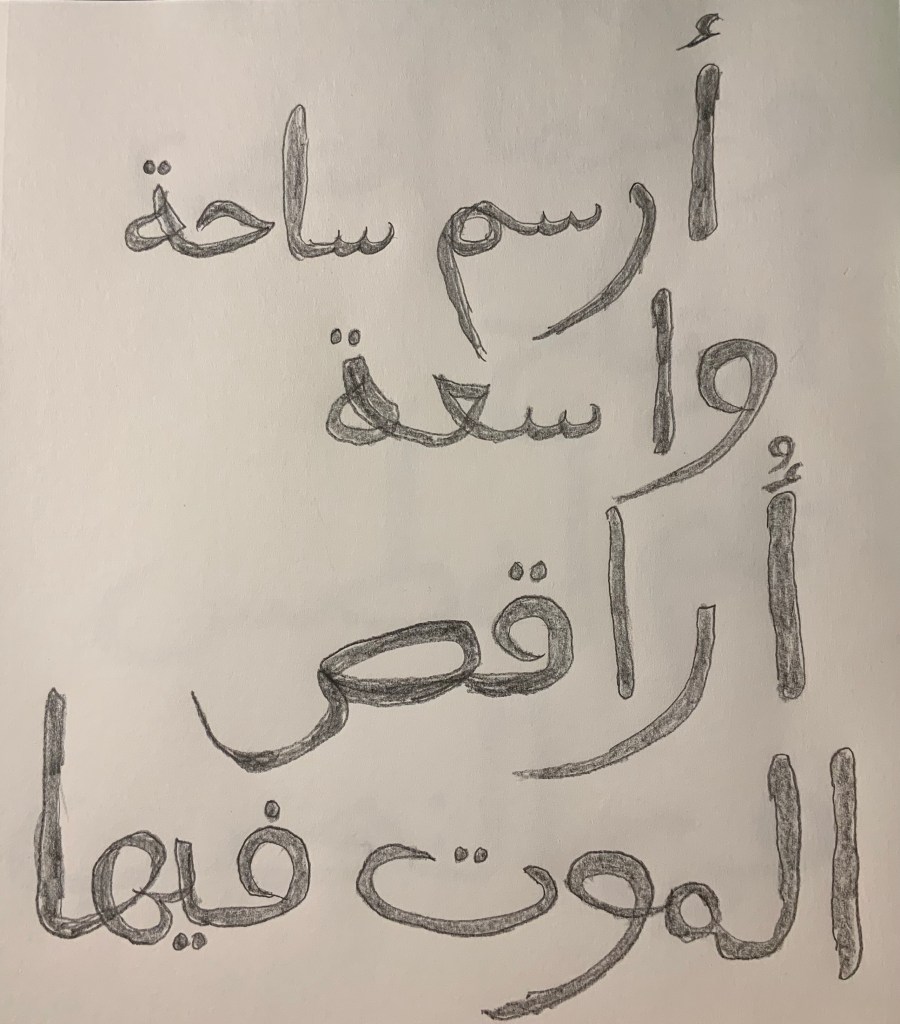 أرسم ساحة
واسعة
أُراقص
الموت فيها